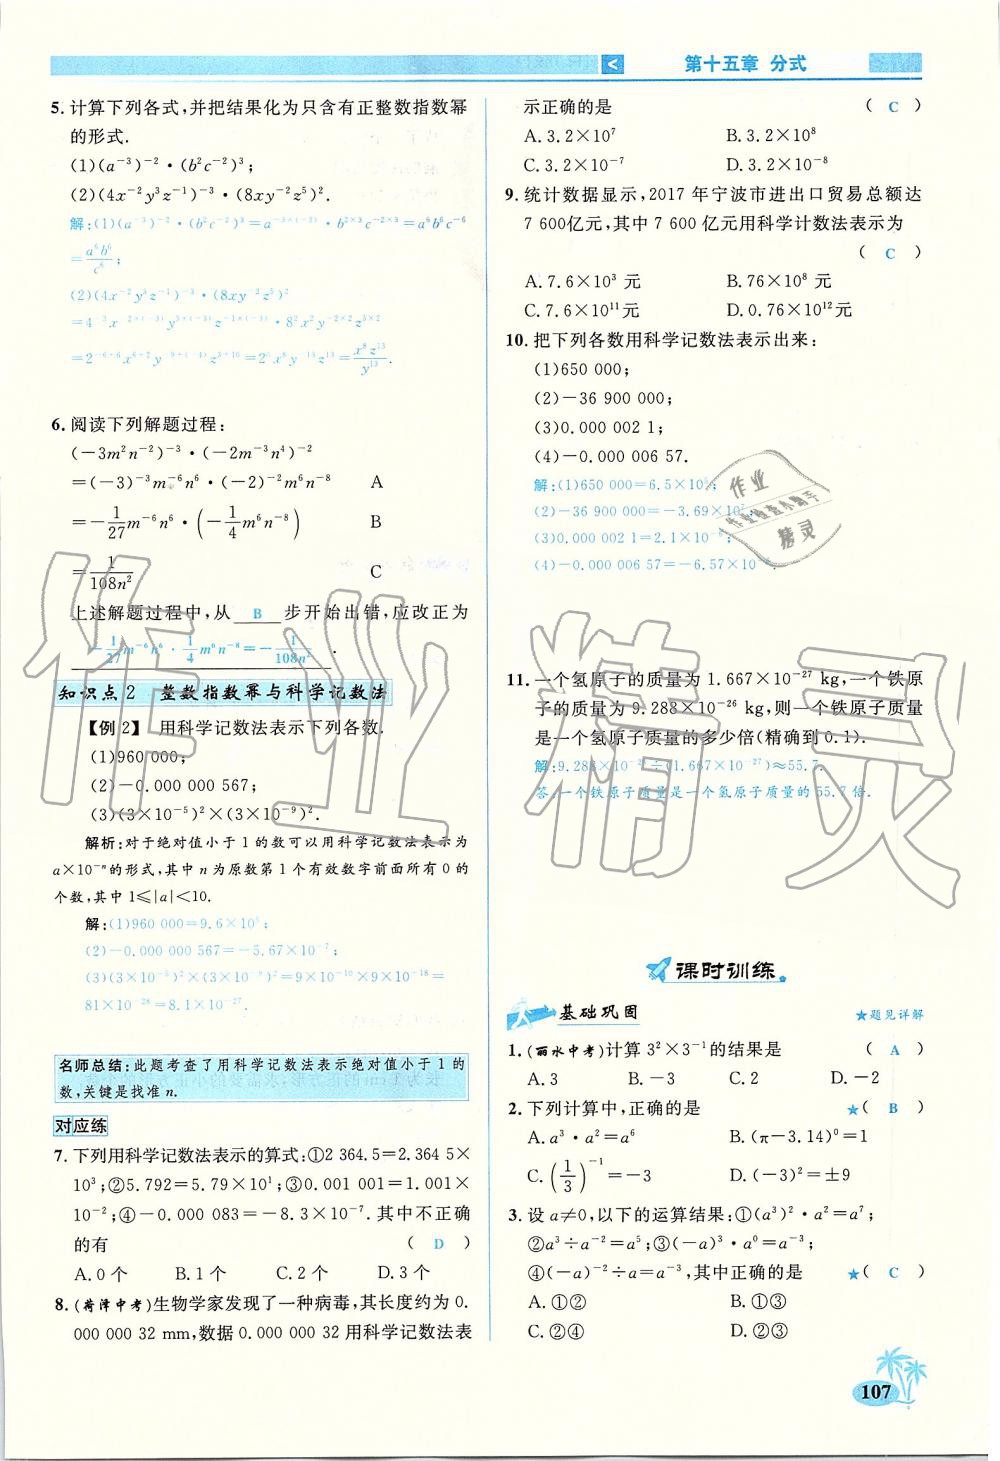 第十五章 分式
5. 计算下列各式,并把结果化为只含有正整数指数幂
的形式.
(1)(a⁻³)⁻²·(b²c⁻²)³;
(2)(4x⁻²y³z⁻¹)⁻³·(8xy⁻²z⁵)².
解:(1)(a⁻³)⁻²·(b²c⁻²)³=a⁻³ˣ⁽⁻²⁾·b²ˣ³c⁻²ˣ³=a⁶b⁶c⁻⁶
=a⁶b⁶/c⁶;
(2)(4x⁻²y³z⁻¹)⁻³·(8xy⁻²z⁵)²
=4⁻³x⁻²ˣ⁽⁻³⁾y³ˣ⁽⁻³⁾z⁻¹ˣ⁽⁻³⁾·8²x²y⁻²ˣ²z⁵ˣ²
=x⁸z¹³/y¹³.
6. 阅读下列解题过程:
(-3m²n⁻²)⁻³·(-2m⁻³n⁴)⁻²
=(-3)⁻³m⁻⁶n⁶·(-2)⁻²m⁶n⁻⁸ A
=-1/27m⁻⁶n⁶·(-1/4m⁶n⁻⁸) B
=1/108n² C
上述解题过程中,从 B 步开始出错,应改正为
-1/27m⁻⁶n⁶·1/4m⁶n⁻⁸=-1/108n² .
知识点2 整数指数幂与科学记数法
【例2】 用科学记数法表示下列各数.
(1)960 000;
(2)-0.000 000 567;
(3)(3×10⁻⁵)²×(3×10⁻⁹)².
解析:对于绝对值小于1的数可以用科学记数法表示为
a×10⁻ⁿ的形式,其中n为原数第1个有效数字前面所有0的
个数,其中1≤|a|<10.
解:(1)960 000=9.6×10⁵;
(2)-0.000 000 567=-5.67×10⁻⁷;
(3)(3×10⁻⁵)²×(3×10⁻⁹)²=9×10⁻¹⁰×9×10⁻¹⁸=
81×10⁻²⁸=8.1×10⁻²⁷.
名师总结:此题考查了用科学记数法表示绝对值小于1的
数,关键是找准n.
对应练
7. 下列用科学记数法表示的算式:①2 364.5=2.364 5×
10³;②5.792=5.79×10¹;③0.001 001=1.001×
10⁻²;④-0.000 083=-8.3×10⁻⁷.其中不正确
的有 ( D )
A.0个 B.1个 C.2个 D.3个
8. (菏泽中考)生物学家发现了一种病毒,其长度约为0.
000 000 32 mm,数据0.000 000 32用科学记数法表
示正确的是 ( C )
A.3.2×10⁷ B.3.2×10⁸
C.3.2×10⁻⁷ D.3.2×10⁻⁸
9. 统计数据显示,2017年宁波市进出口贸易总额达
7 600亿元,其中7 600亿元用科学计数法表示为
( C )
A.7.6×10³元 B.76×10⁸元
C.7.6×10¹¹元 D.0.76×10¹²元
10. 把下列各数用科学记数法表示出来:
(1)650 000;
(2)-36 900 000;
(3)0.000 002 1;
(4)-0.000 006 57.
解:(1)650 000=6.5×10⁵;
(2)-36 900 000=-3.69×10⁷;
(3)0.000 002 1=2.1×10⁻⁶;
(4)-0.000 006 57=-6.57×10⁻⁶.
作业
作业检查小助手
精灵
11. 一个氢原子的质量为1.667×10⁻²⁷ kg,一个铁原
子的质量为9.288×10⁻²⁶ kg,则一个铁原子质量
是一个氢原子质量的多少倍(精确到0.1).
解:9.288×10⁻²⁶÷(1.667×10⁻²⁷)≈55.7.
答:一个铁原子质量是一个氢原子质量的55.7倍.
作业精灵
课时训练
基础巩固 ★题见详解
1. (丽水中考)计算3²×3⁻¹的结果是 ( A )
A.3 B.-3 C.2 D.-2
2. 下列计算中,正确的是 ★( B )
A.a³·a²=a⁶ B.(π-3.14)⁰=1
C.(1/3)⁻¹=-3 D.√9=±9
3. 设a≠0,以下的运算结果:①(a³)²·a²=a⁷;
②a³÷a⁻²=a⁵;③(-a)³·a⁰=a⁻³;
④(-a)⁻²÷a=a⁻³,其中正确的是 ★( C )
A.①② B.①③
C.②④ D.②③
107